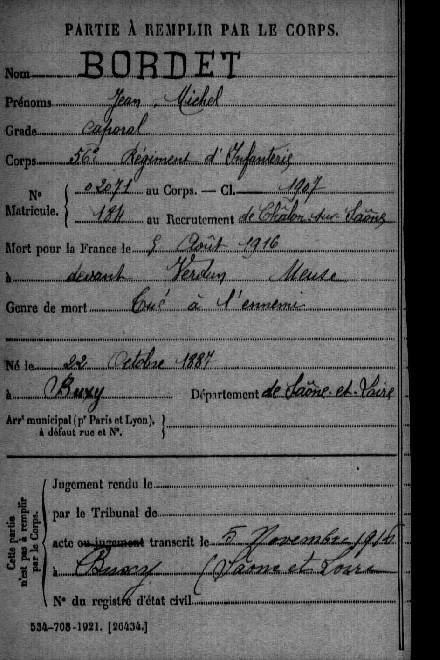 PARTIE À REMPLIR PAR LE CORPS.
Nom BORDET
Prénoms Jean Michel
Grade Caporal
Corps 56e Régiment d'Infanterie
N° Matricule. { 02071 au Corps. — Cl. 1907
174 au Recrutement de Châlon sur Saône
Mort pour la France le 5 Août 1916
à devant Verdun Meuse
Genre de mort Tué à l'ennemi
Né le 22 Octobre 1887
à Buxy Département de Saône-et-Loire
Arrt municipal (pr Paris et Lyon), à défaut rue et N°. }
Cette partie n'est pas à remplir par le Corps.
Jugement rendu le
par le Tribunal de
acte ou jugement transcrit le 5 Novembre 1916
à Buxy (Saone et Loire
N° du registre d'état civil
534-708-1921. [26434.]